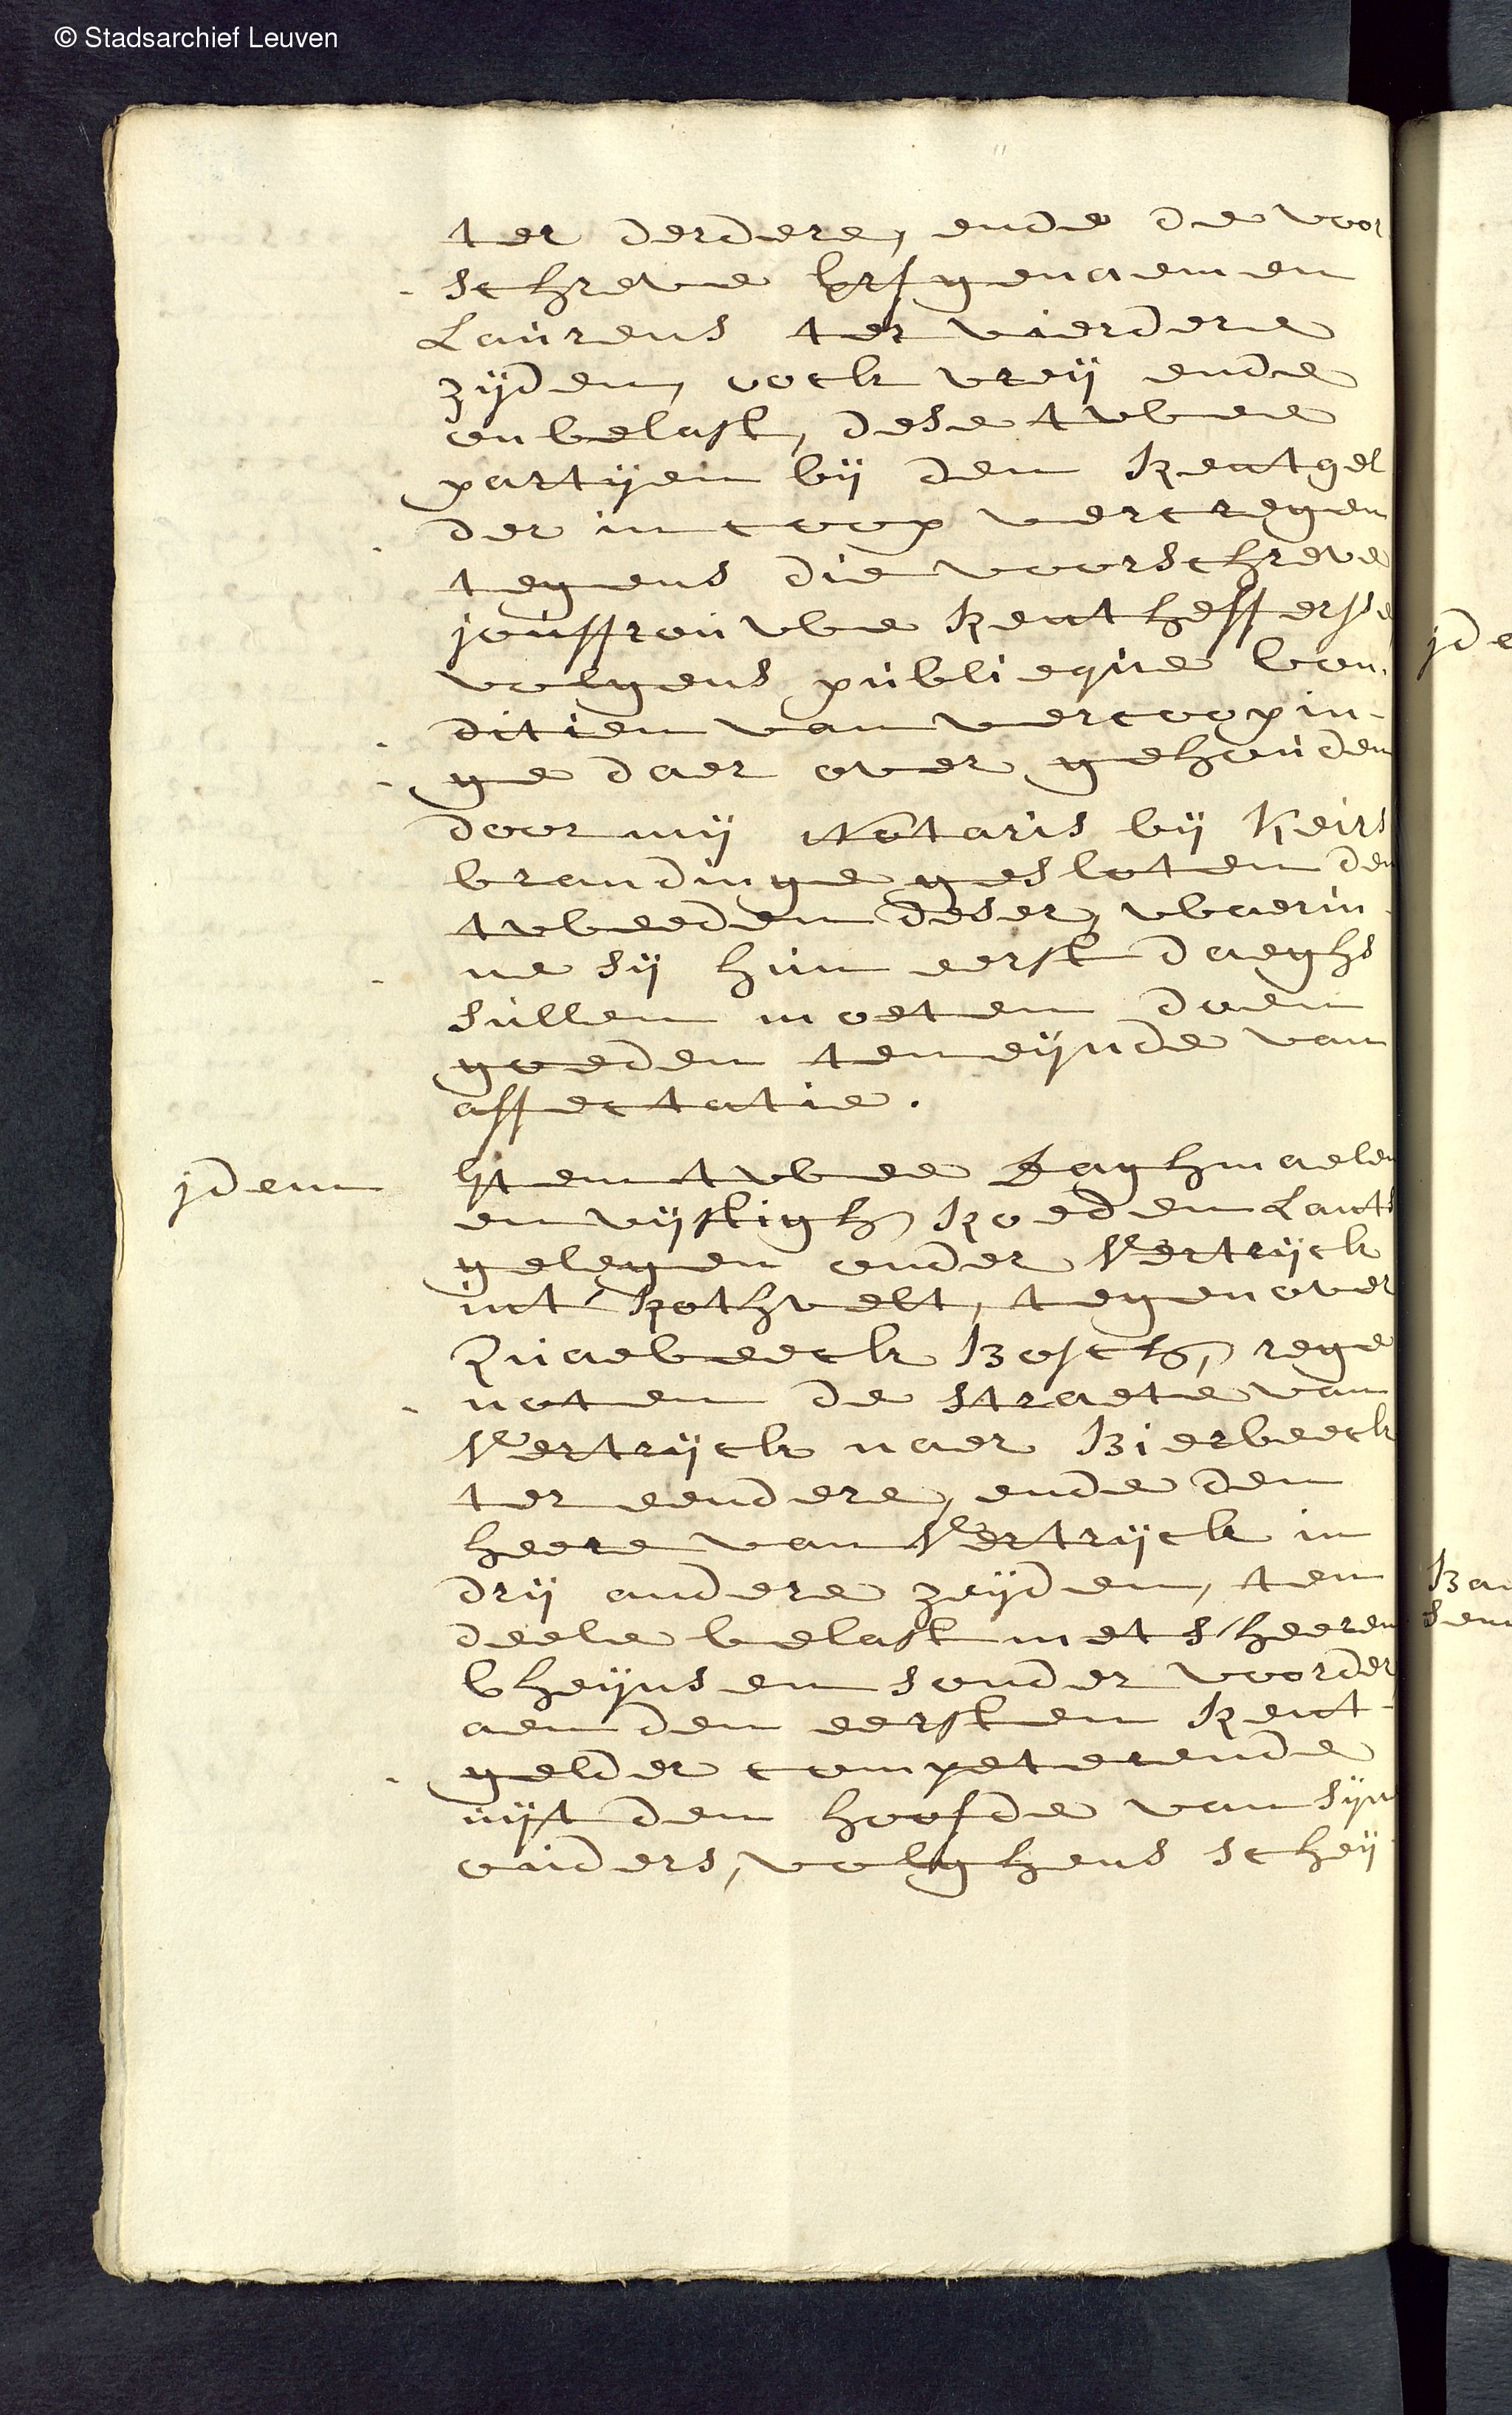 © Stadsarchief Leuven
ter derdere, ende de voor
schreve Erfgenaemen
Laurens ter vierdere
zijden, oock vreij ende
onbelast, dese twee
partijen bij den Rentgel
der in coop vercregen
tegens die voorschreve
jouffrouwe Rentheffersse
volgens publieque Con-
ditien van vercoopin-
ge daer over gehouden
door mij Notaris bij Keirs
brandinge gesloten den
tweeden deser, waerin
ne sij hun eerst daeghs
sullen moeten doen
goeden ten eijnde van
affectatie.
jdem
Item twee Daghmaelen
en vijftigh Roeden Lants
gelegen onder Vertrijck
int Rothvelt, tegenover
Quaebeeck Bosch, rege
noten de straete van
Vertrijck naer Bierbeeck
ter eendere, ende den
heere van Vertrijck in
drij andere zeijden, ten
deele belast met s'heeren
Cheijnsen sonder voorder
aen den eersten Rent-
gelder competerende
uijt den hoofde van sijn
ouders, volghens scheij